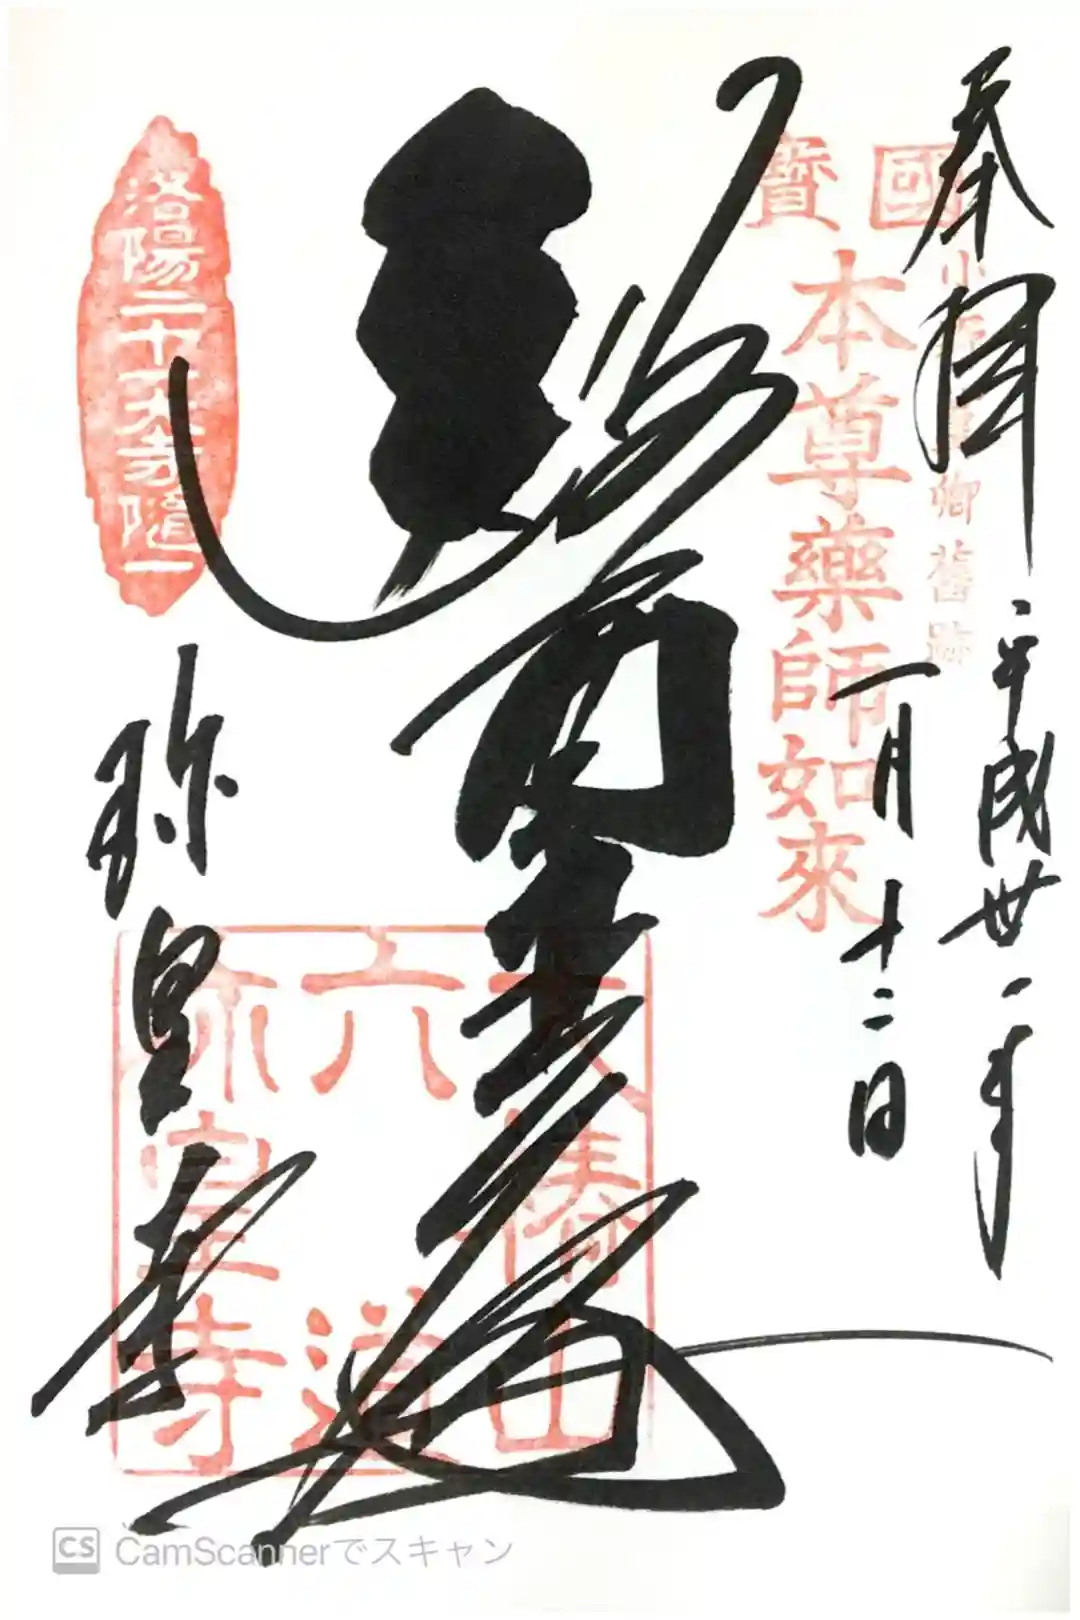 奉拝
平成丗一年
一月十二日
國寶
本尊藥師如來
小野篁卿舊跡
洛陽二十大寺隨一
珍皇寺
大椿山
六道
珍皇寺
CS CamScannerでスキャン